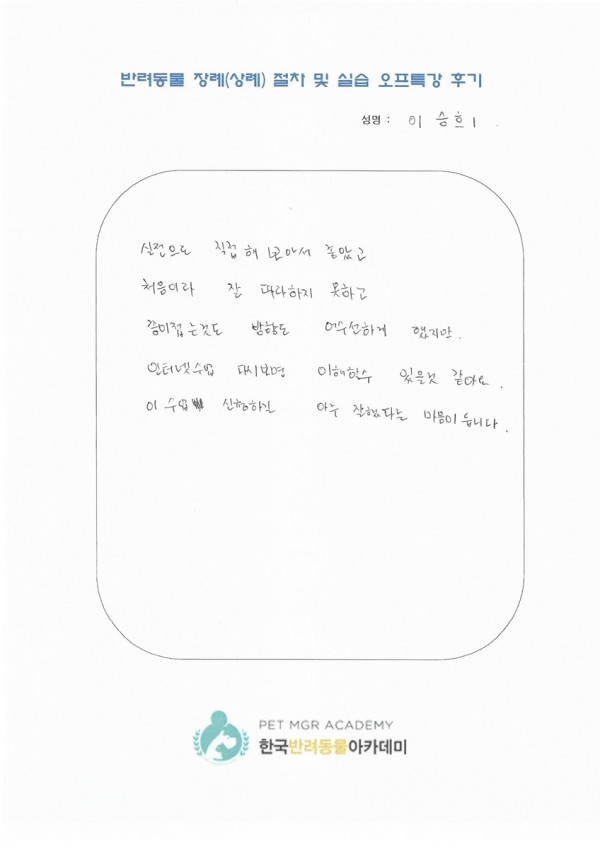 반려동물 장례(상례) 절차 및 실습 오프특강 후기
성명 : 이 승희
실전으로 직접 해 보아서 좋았고
처음이라 잘 따라하지 못하고
종이접는것도 방향도 어수선하게 했지만.
인터넷수업 다시보면 이해할수 있을것 같아요.
이 수업 신청하길 아주 잘했다는 마음이 듭니다.
PET MGR ACADEMY
한국반려동물아카데미